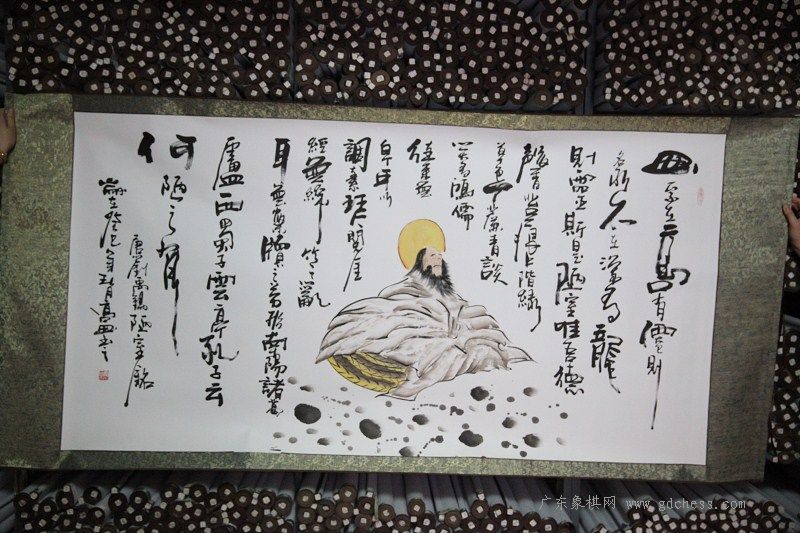 山不在高有僊則
名水不在深有龍
則靈斯是陋室唯吾德
馨苔痕上階綠
草色入簾青談
笑有鴻儒
往來無
白丁可以
調素琴閱金
經無絲竹之亂
耳無案牘之勞形南陽諸葛
廬西蜀子雲亭孔子云
何陋之有
唐劉禹錫陋室銘
歲在癸巳年
广东象棋网 www.gdchess.com